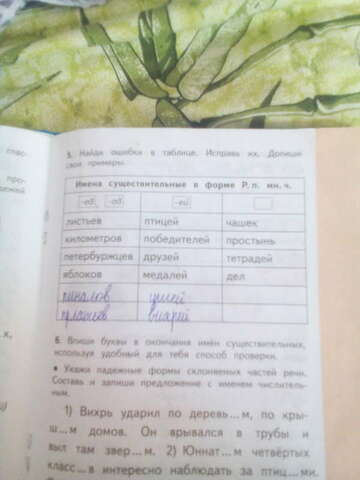 5. Найди ошибки в таблице. Исправь их. Допиши
свои примеры.
Имена существительные в форме Р. п. мн. ч.
-ов -ев -ей
листьев птицей чашек
километров победителей простынь
петербуржцев друзей тетрадей
яблоков медалей дел
пиналов ушей
плащев
6. Впиши буквы в окончания имён существительных,
используя удобный для тебя способ проверки.
• Укажи падежные формы склоняемых частей речи.
Составь и запиши предложение с именем числитель-
ным.
1) Вихрь ударил по деревь...м, по кры-
ш...м домов. Он врывался в трубы и
выл там звер...м. 2) Юннат...м четвёртых
класс...в интересно наблюдать за птиц...ми.